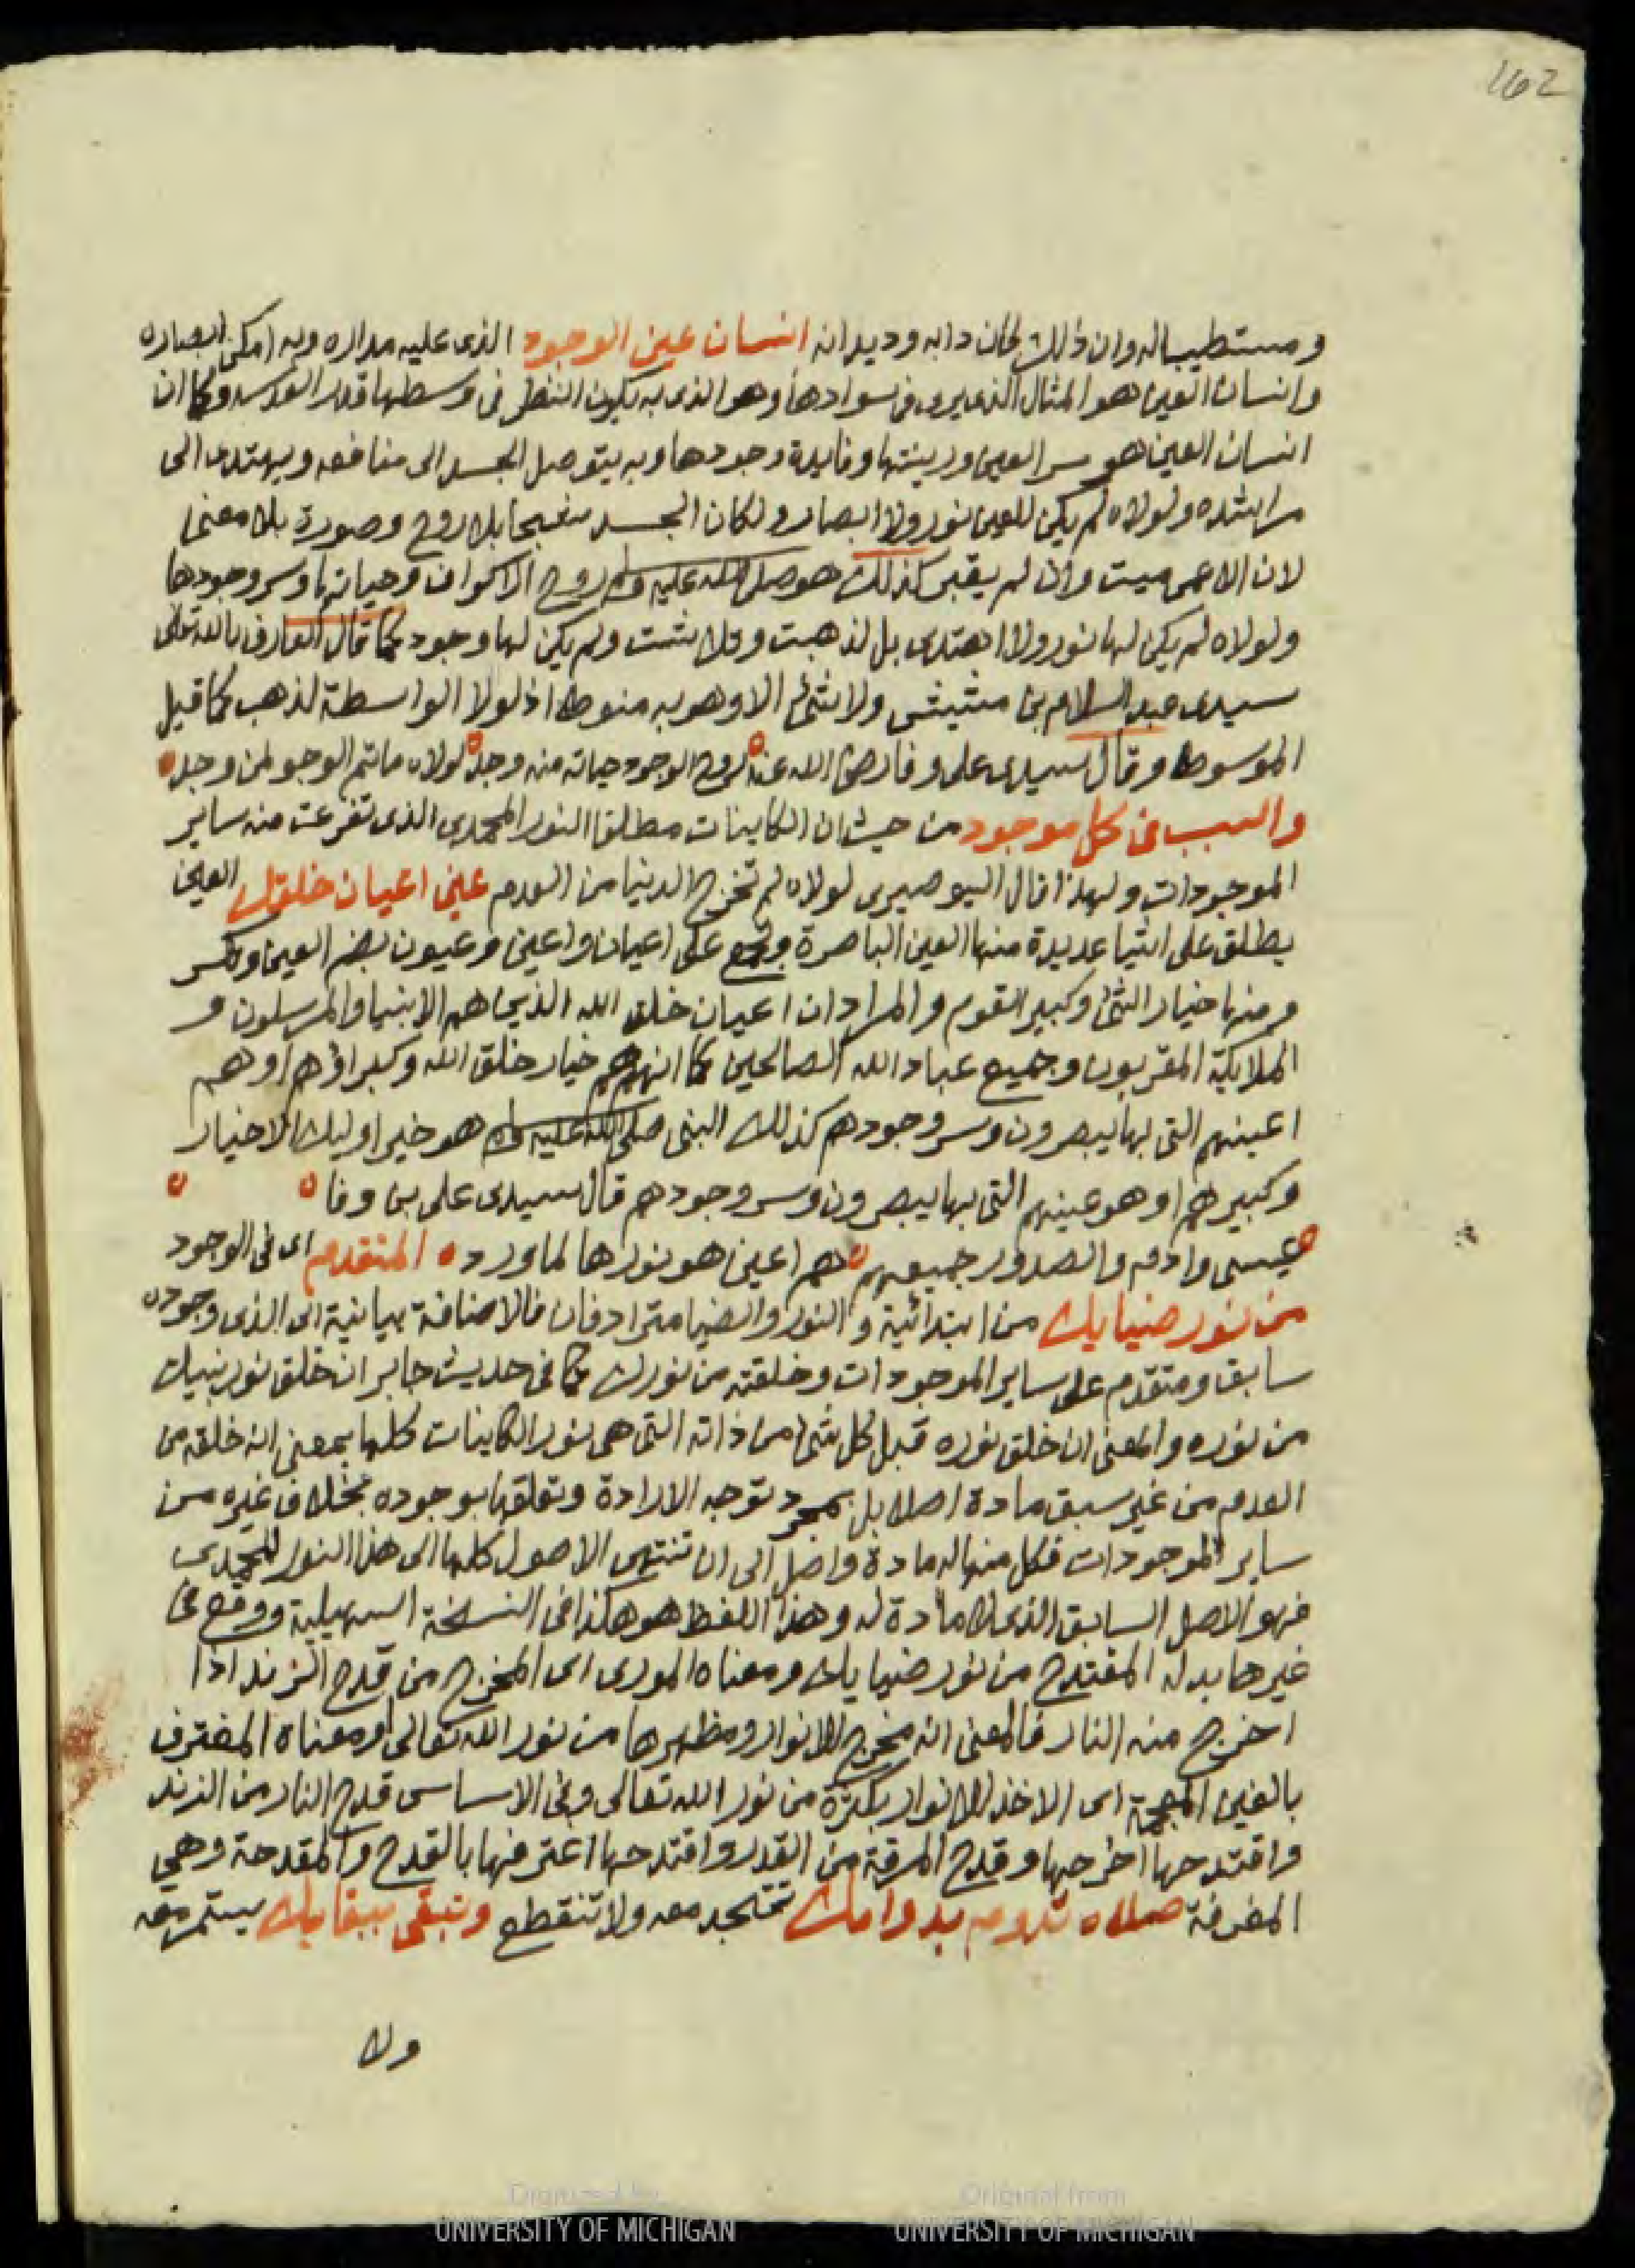 162
ومستطيبا له وان ذلك كان دابه وديدانه انسان عين الوجود الذى عليه مداره وبه امكن ابصاره
وانسان العين هو المثال الذى يرى فى سوادها وهو الذى به يكون النظر فى وسطها قدر العدسه وكما ان
انسان العين هو سر العين وزينتها وفايدة وجودها وبه يتوصل الجسد الى منافعه ويهتدى الى
مراشده ولولاه لم يكن للعين نور ولا ابصار ولكان الجسد شبحا بلا روح وصورة بلا معنى
لان الاعمى ميت وان لم يقبر كذلك هو صلى الله عليه وسلم روح الاكوان وحياتها وسر وجودها
ولولاه لم يكن لها نور ولا اهتدى بل لذهبت وتلاشت ولم يكن لها وجود كما قال العارف بالله تعالى
سيدى عبد السلام بن مشيش ولا شئ الا وهو به منوط اذ لولا الواسطة لذهب كما قيل
الموسوط وقال سيدى على وفا رضى الله عنه روح الوجود حياته منه وجد لولاه ماتم الوجود لمن وجد
والسبب فى كل موجود من حيث ان الكاينات مطلقا النور المحمدى الذى تفرعت منه ساير
الموجودات ولهذا قال البوصيرى لولاه لم تخرج الدنيا من العدم عين اعيان خلقك العين
يطلق على اشيا عديدة منها العين الباصرة وتجمع على اعيان واعين وعيون بضم العين وتكسر
ومنها خيار الشئ وكبير القوم والمراد ان اعيان خلق الله الذين هم الانبيا والمرسلون و
الملايكة المقربون وجميع عباد الله الصالحين كما انهم هم خيار خلق الله وكبراؤهم او هم
اعينهم التى بها يبصرون وسر وجودهم كذلك النبى صلى الله عليه وسلم هو خير اوليك الاخيار
وكبيرهم او هو عينهم التى بها يبصرون وسر وجودهم قال سيدى على بن وفا
عيسى وادم والصدور جميعهم هم اعين هو نورها لما ورد المتقدم اى فى الوجود
من نور ضيايك من ابتدائية والنور والضيا مترادفان فالاضافة بيانية اى الذى وجوده
سابق ومتقدم على ساير الموجودات وخلقته من نورك كما فى حديث جابر ان خلق نور نبيك
من نوره والمعنى ان خلق نوره قبل كل شئ من ذاته التى هى نور الكاينات كلها بمعنى انه خلقه من
العدم من غير سبق مادة اصلا بل بمجرد توجه الارادة وتعلقها بوجوده بخلاف غيره من
ساير الموجودات فكل منها له مادة واصل الى ان تنتهى الاصول كلها الى هذا النور المحمدى
فهو الاصل السابق الذى لا مادة له وهذا اللفظ هو هكذا فى النسخة السهيلية ووقع فى
غيرها بدله المقتدح من نور ضيايك ومعناه المورى اى المخرج من قدح الزند اذا
اخرج منه النار فالمعنى انه مخرج الانوار ومظهرها من نور الله تعالى او معناه المغترف
بالغين المعجمة اى الاخذ الانوار بكثرة من نور الله تعالى وفى الاساس قدح النار من الزند
واقتدحها اخرجها وقدح المرقة من القدر واقتدحها اغترفها بالقدح والمقدحة وهى
المغرفة صلاه تدوم بدوامك تتجدد معه ولا تنقطع وتبقى ببقايك يستمر معه
ولا
Digitized by
UNIVERSITY OF MICHIGAN
Original from
UNIVERSITY OF MICHIGAN